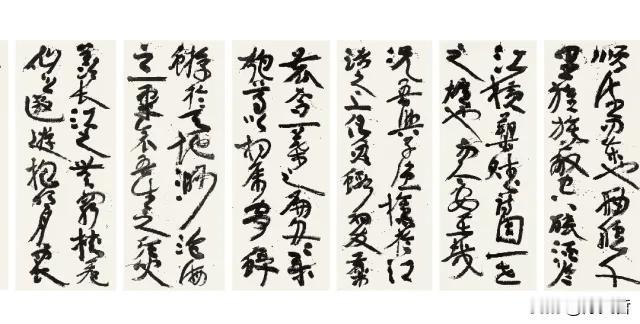 順流而東也舳艫千
里旌旗蔽空釃酒臨
江橫槊賦詩固一世
之雄也而今安在哉
況吾與子漁樵於江
渚之上侶魚蝦而友麋
鹿駕一葉之扁舟舉
匏尊以相屬寄蜉
蝣於天地渺滄海
之一粟哀吾生之須臾
羨長江之無窮挾飛
仙以遨遊抱明月而長